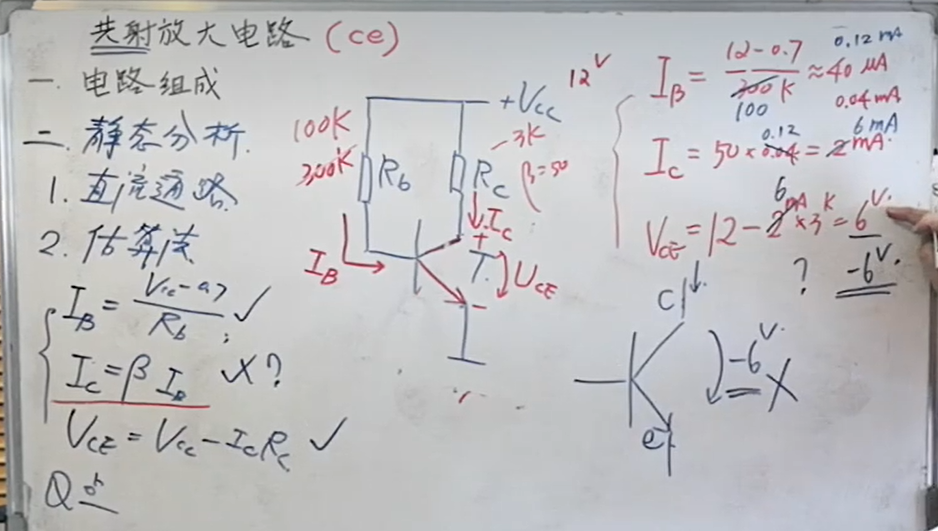 共射放大电路 (ce)
一. 电路组成
二. 静态分析.
1. 直流通路
2. 估算法
I_B = (Vcc - 0.7) / R_b ✓ ;
I_C = β I_B ✓ X ?
V_CE = V_CC - I_C R_C ✓
Q点
+Vcc 12V
100K
300K
R_b
3K
R_C
β=50
I_C
I_B
+
T.
U_CE
-
I_B = (12-0.7) / 300K ≈ 40 μA
100
0.12 mA
0.04 mA
I_C = 50 × 0.04 = 2 mA.
0.12
6 mA
V_CE = 12 - 2 mA × 3K = 6V.
6
? -6V.
c
e
-6V. X